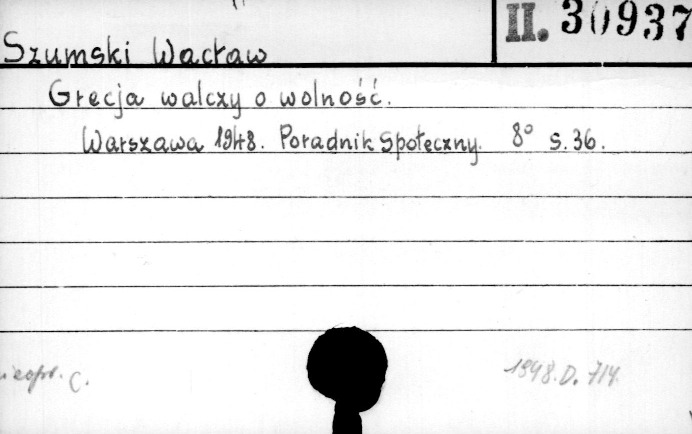 II. 30937
Szumski Wacław
Grecja walczy o wolność.
Warszawa 1948. Poradnik Społeczny. 8° s. 36.
nieopr. C.
1948.D. 714.